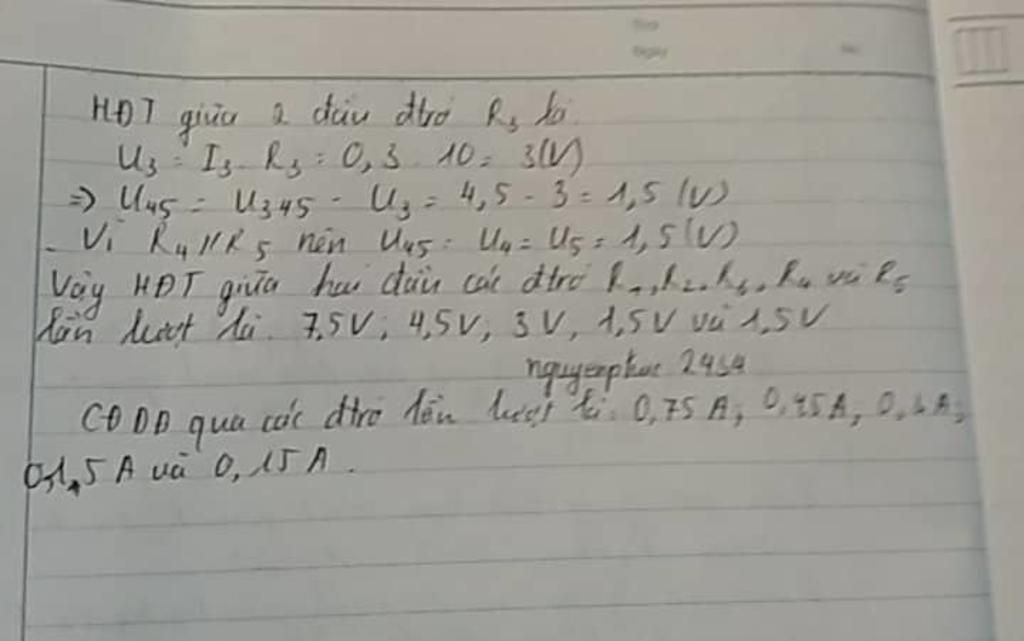 HĐT giữa 2 đầu đtrở R₃ là
U₃ = I₃ . R₃ = 0,3 . 10 = 3(V)
=> U₄₅ = U₃₄₅ - U₃ = 4,5 - 3 = 1,5 (V)
- Vì R₄ // R₅ nên U₄₅ = U₄ = U₅ = 1,5 (V)
Vậy HĐT giữa hai đầu các đtrở R₁, R₂, R₃, R₄ và R₅
lần lượt là 7,5V; 4,5V; 3V, 1,5V và 1,5V
CĐDĐ qua các đtrở lần lượt là 0,75A; 0,45A; 0,3A;
0,15A và 0,15A.